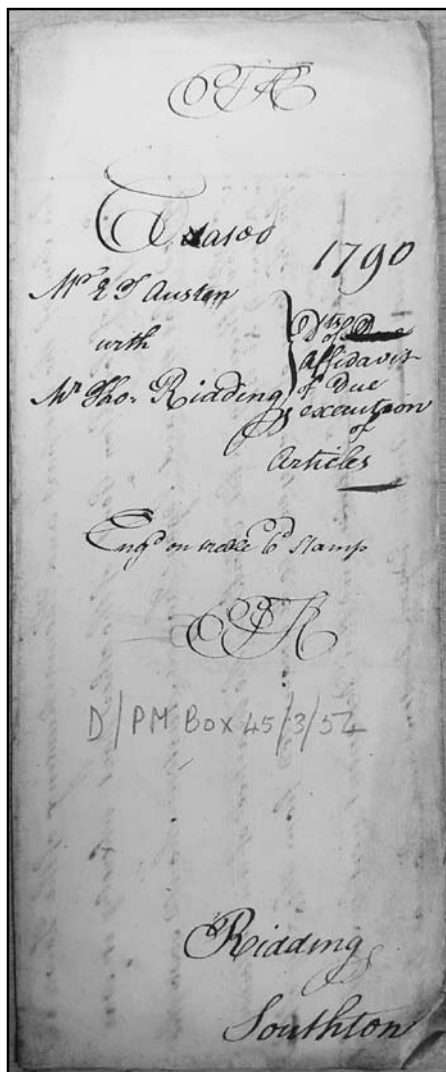 1790
Mr E T Austen
with
Mr Tho. Ridding
Dts of Due
Affidavit
of Due
execution
of
Articles
Engd on treble 6d Stamp
D/PM Box 45/3/52
Ridding
Southton